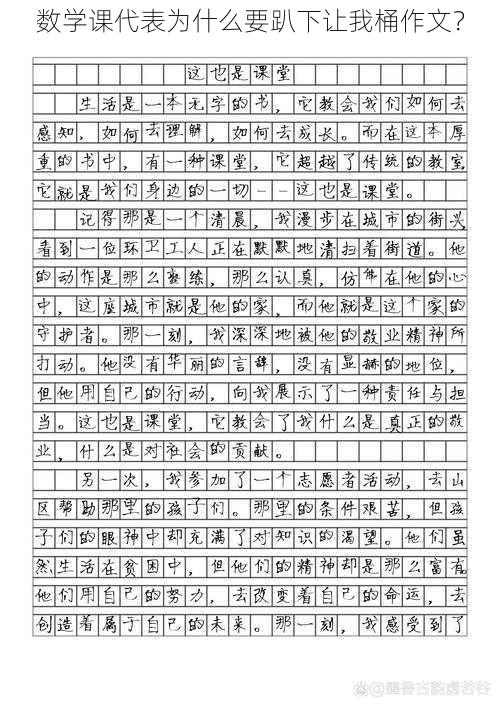 数学课代表为什么要趴下让我桶作文?
这也是课堂
生活是一本无字的书，它教会我们如何去
感知，如何去理解，如何去成长。而在这本厚
重的书中，有一种课堂，它超越了传统的教室
它就是我们身边的一切--这也是课堂。
记得那是一个清晨，我漫步在城市的街头
看到一位环卫工人正在默默地清扫着街道。他
的动作是那么熟练，那么认真，仿佛在他的心
中，这座城市就是他的家，而他就是这个家的
守护者。那一刻，我深深地被他的敬业精神所
打动。他没有华丽的言辞，没有显赫的地位，
但他用自己的行动，向我展示了一种责任与担
当。这也是课堂，它教会了我什么是真正的敬
业，什么是对社会的贡献。
另一次，我参加了一个志愿者活动，去山
区帮助那里的孩子们。那里的条件艰苦，但孩
子们的眼神中却充满了对知识的渴望。他们虽
然生活在贫困中，但他们的精神却是那么富有
他们用自己的努力，去改变着自己的命运，去
创造着属于自己的未来。那一刻，我感受到了